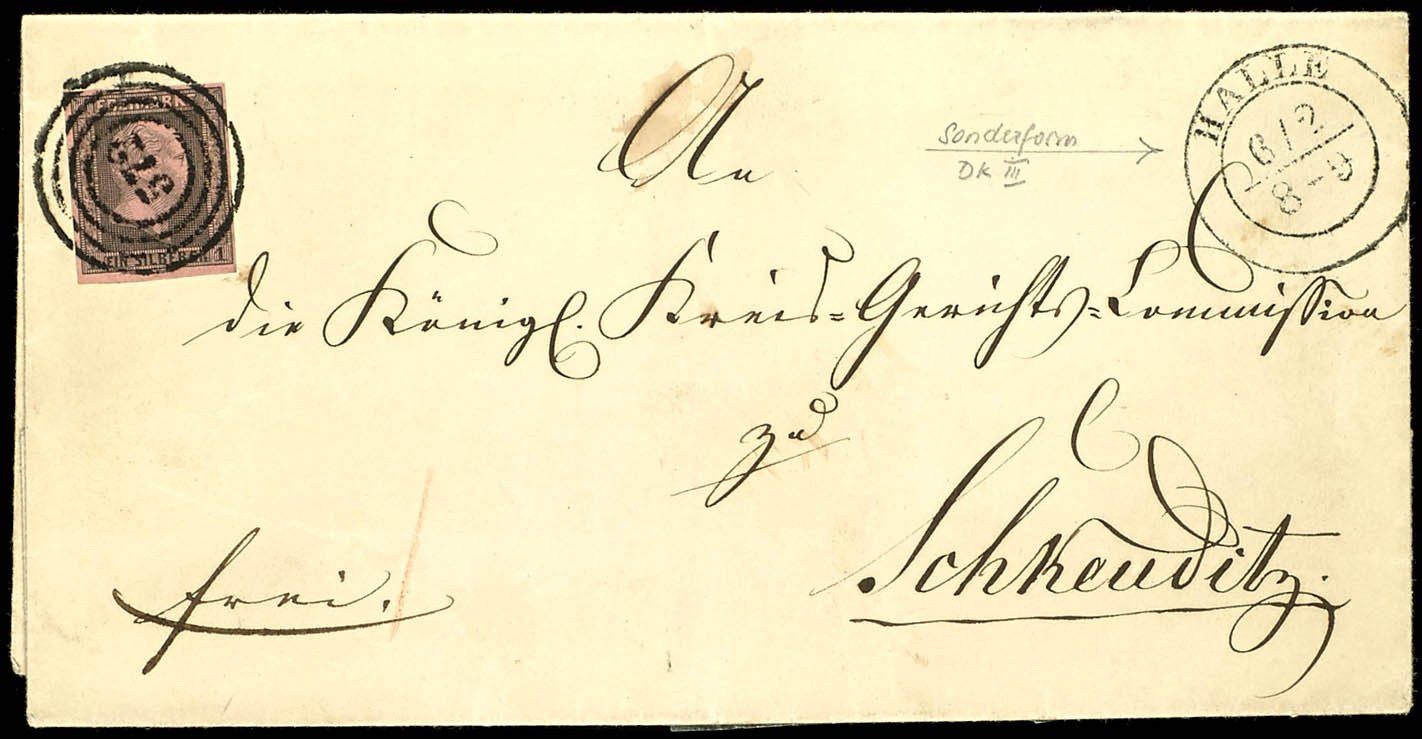 FREIMARKE
575
EIN SILBERGR. 1
HALLE
6/2
8-9
Sonderform
DK III
An
die Königl. Kreis=Gerichts=Commission
zu
Schkeuditz.
frei.